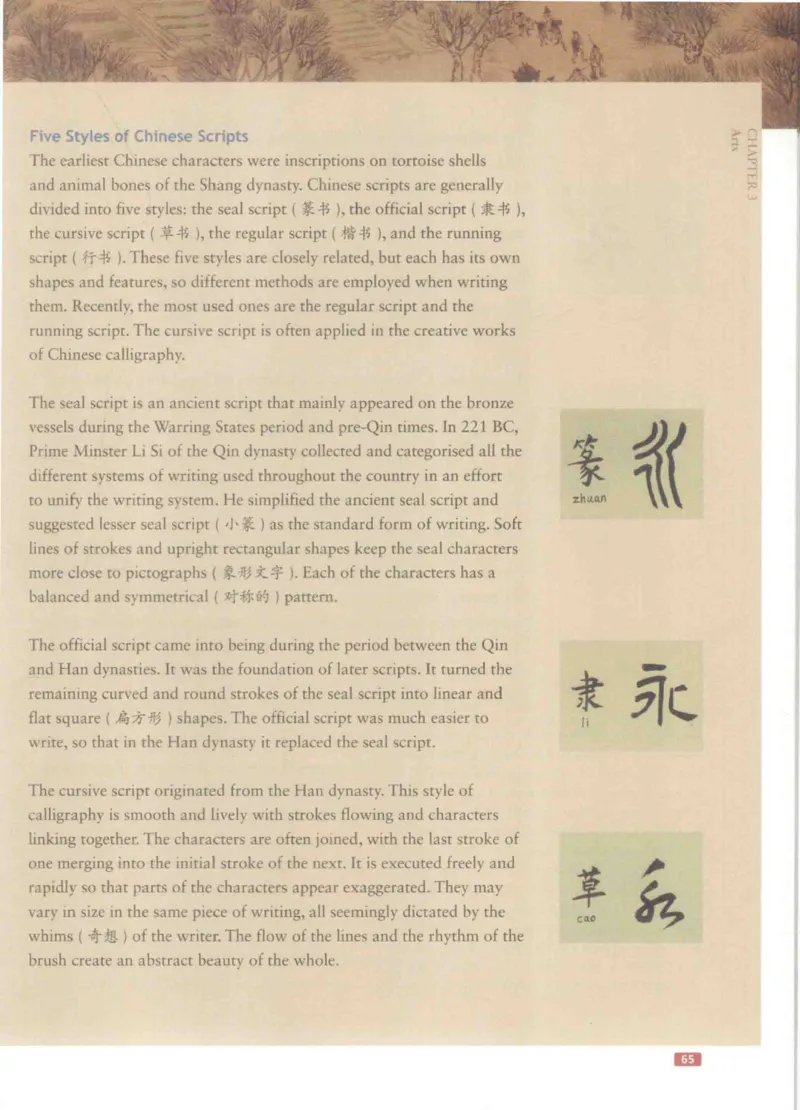 CHAPTER 3
Arts
Five Styles of Chinese Scripts
The earliest Chinese characters were inscriptions on tortoise shells
and animal bones of the Shang dynasty. Chinese scripts are generally
divided into five styles: the seal script ( 篆书 ), the official script ( 隶书 ),
the cursive script ( 草书 ), the regular script ( 楷书 ), and the running
script ( 行书 ). These five styles are closely related, but each has its own
shapes and features, so different methods are employed when writing
them. Recently, the most used ones are the regular script and the
running script. The cursive script is often applied in the creative works
of Chinese calligraphy.
The seal script is an ancient script that mainly appeared on the bronze
vessels during the Warring States period and pre-Qin times. In 221 BC,
Prime Minster Li Si of the Qin dynasty collected and categorised all the
different systems of writing used throughout the country in an effort
to unify the writing system. He simplified the ancient seal script and
suggested lesser seal script ( 小篆 ) as the standard form of writing. Soft
lines of strokes and upright rectangular shapes keep the seal characters
more close to pictographs ( 象形文字 ). Each of the characters has a
balanced and symmetrical ( 对称的 ) pattern.
篆 永
zhuan
The official script came into being during the period between the Qin
and Han dynasties. It was the foundation of later scripts. It turned the
remaining curved and round strokes of the seal script into linear and
flat square ( 扁方形 ) shapes. The official script was much easier to
write, so that in the Han dynasty it replaced the seal script.
隶 永
li
The cursive script originated from the Han dynasty. This style of
calligraphy is smooth and lively with strokes flowing and characters
linking together. The characters are often joined, with the last stroke of
one merging into the initial stroke of the next. It is executed freely and
rapidly so that parts of the characters appear exaggerated. They may
vary in size in the same piece of writing, all seemingly dictated by the
whims ( 奇想 ) of the writer. The flow of the lines and the rhythm of the
brush create an abstract beauty of the whole.
草 永
cao
65